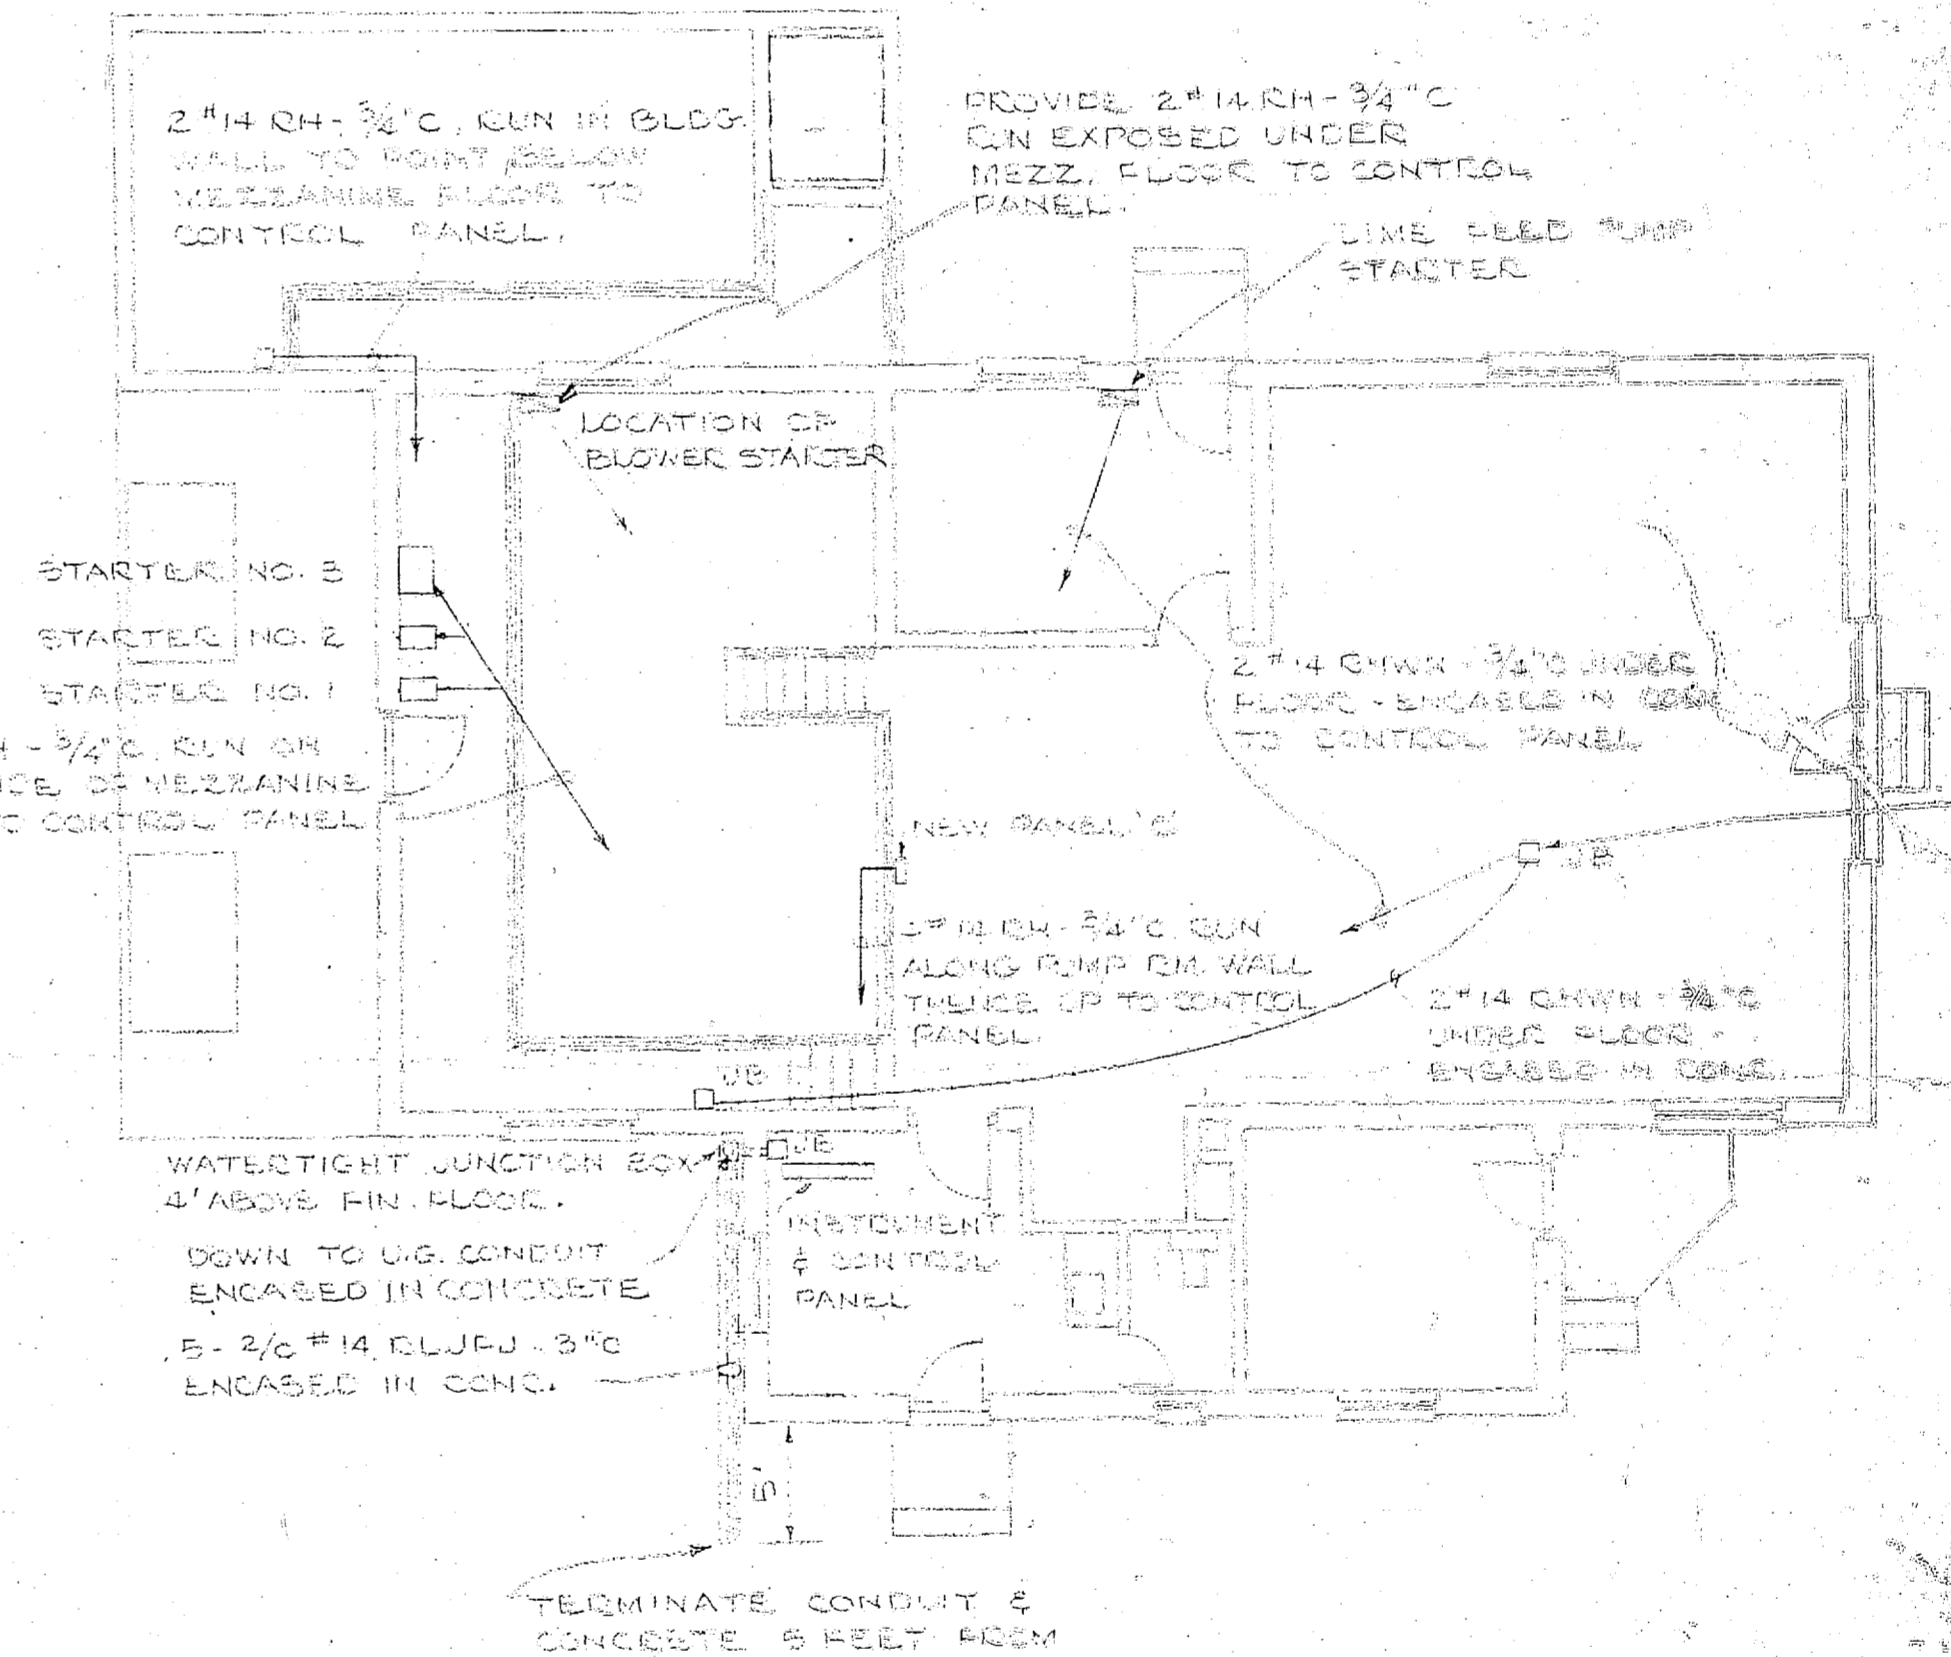 2 #14 RH - 3/4"C, RUN IN BLDG.
WALL TO POINT BELOW
MEZZANINE FLOOR TO
CONTROL PANEL.
PROVIDE 2 #14 RH - 3/4"C
RUN EXPOSED UNDER
MEZZ. FLOOR TO CONTROL
PANEL.
LIME FEED PUMP
STARTER
LOCATION OF
BLOWER STARTER
STARTER NO. 3
STARTER NO. 2
STARTER NO. 1
H - 3/4"C, RUN ON
OF MEZZANINE
TO CONTROL PANEL
2 #14 RHWN - 3/4"C UNDER
FLOOR - ENCASED IN CONC
TO CONTROL PANEL
NEW PANEL 'C'
JB
#14 RH - 3/4"C RUN
ALONG PUMP RM. WALL
THENCE UP TO CONTROL
PANEL.
2 #14 RHWN - 3/4"C
UNDER FLOOR -
ENCASED IN CONC.
JB
JB
WATERTIGHT JUNCTION BOX
4' ABOVE FIN. FLOOR.
DOWN TO U.G. CONDUIT
ENCASED IN CONCRETE
INSTRUMENT
& CONTROL
PANEL
5 - 2/C #14 RLJFJ - 3"C
ENCASED IN CONC.
5'
TERMINATE CONDUIT &
CONCRETE 5 FEET FROM